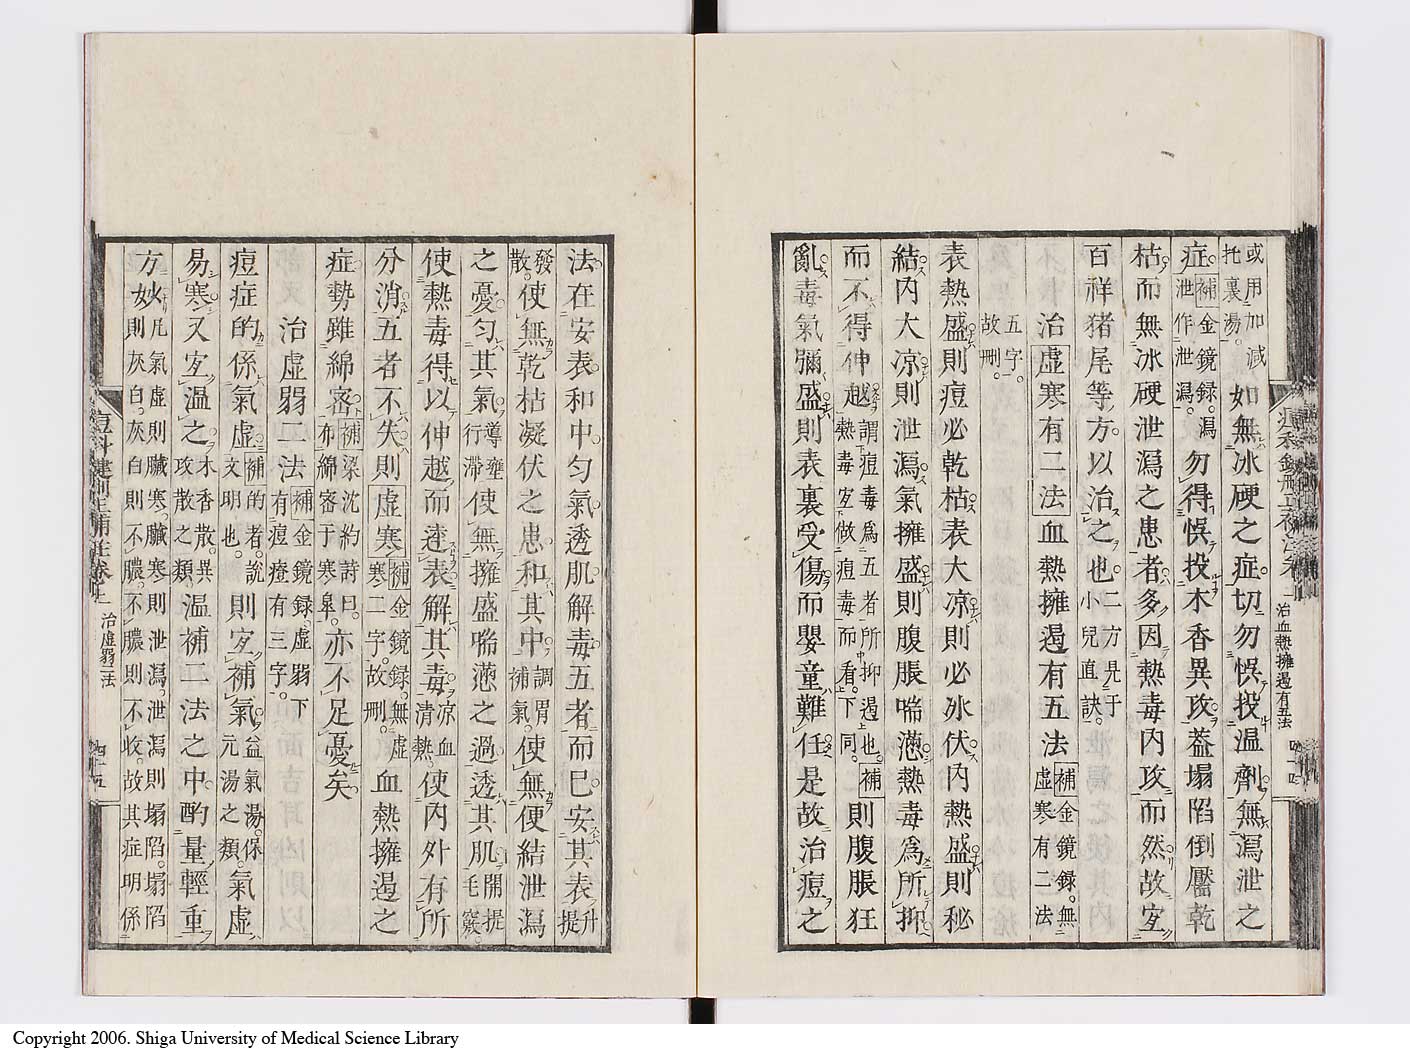 或用加減托裏湯。如無冰硬之症。切勿悞投温劑。無瀉泄之
症。補金鏡録。瀉泄作泄瀉。勿得悞投木香異攻。葢塌陷倒靨乾
枯而無冰硬泄瀉之患者。多因熱毒内攻而然。故宐
百祥猪尾等方。以治之也。二方見于小兒直訣。
治虚寒有二法血熱擁遏有五法補金鏡録。無虚寒有二法
五字。故刪。
表熱盛則痘必乾枯。表大凉則必冰伏。内熱盛則秘
結。内大凉則泄瀉。氣擁盛則腹脹喘懑。熱毒爲所抑
而不得伸越。謂痘毒爲五者所抑遏也。補熱毒宐做痘毒而看。下同。則腹脹狂
亂。毒氣彌盛則表裏受傷。而嬰童難任。是故治痘之
治血熱擁遏有五法
法在安表和中匀氣透肌解毒五者而已。安其表升提
發散。使無乾枯凝伏之患。和其中調胃補氣。使無便結泄瀉
之憂。匀其氣導壅行滯使無擁盛喘懑之過。透其肌開提毛竅。
使熱毒得以伸越而達表。解其毒凉血清熱。使内外有所
分消。五者不失則虚寒補金鏡録。無虚寒二字。故刪。血熱擁遏之
症。勢雖綿密補梁沈約詩曰。布綿密于寒皐。亦不足憂矣
治虚弱二法補金鏡録。虚弱下有痘瘡有三字。
痘症的係氣虚。補的者。説文明也。則宐補氣。益氣湯。保元湯之類。氣虚
易寒。又宐温之。木香散。異攻散之類。温補二法之中。酌量輕重
方妙。凡氣虚則臟寒。臟寒則泄瀉。泄瀉則塌陷。塌陷則灰白。灰白則不膿。不膿則不收。故其症明係
痘科鍵刪正補註卷上
治虚弱二法
四十五